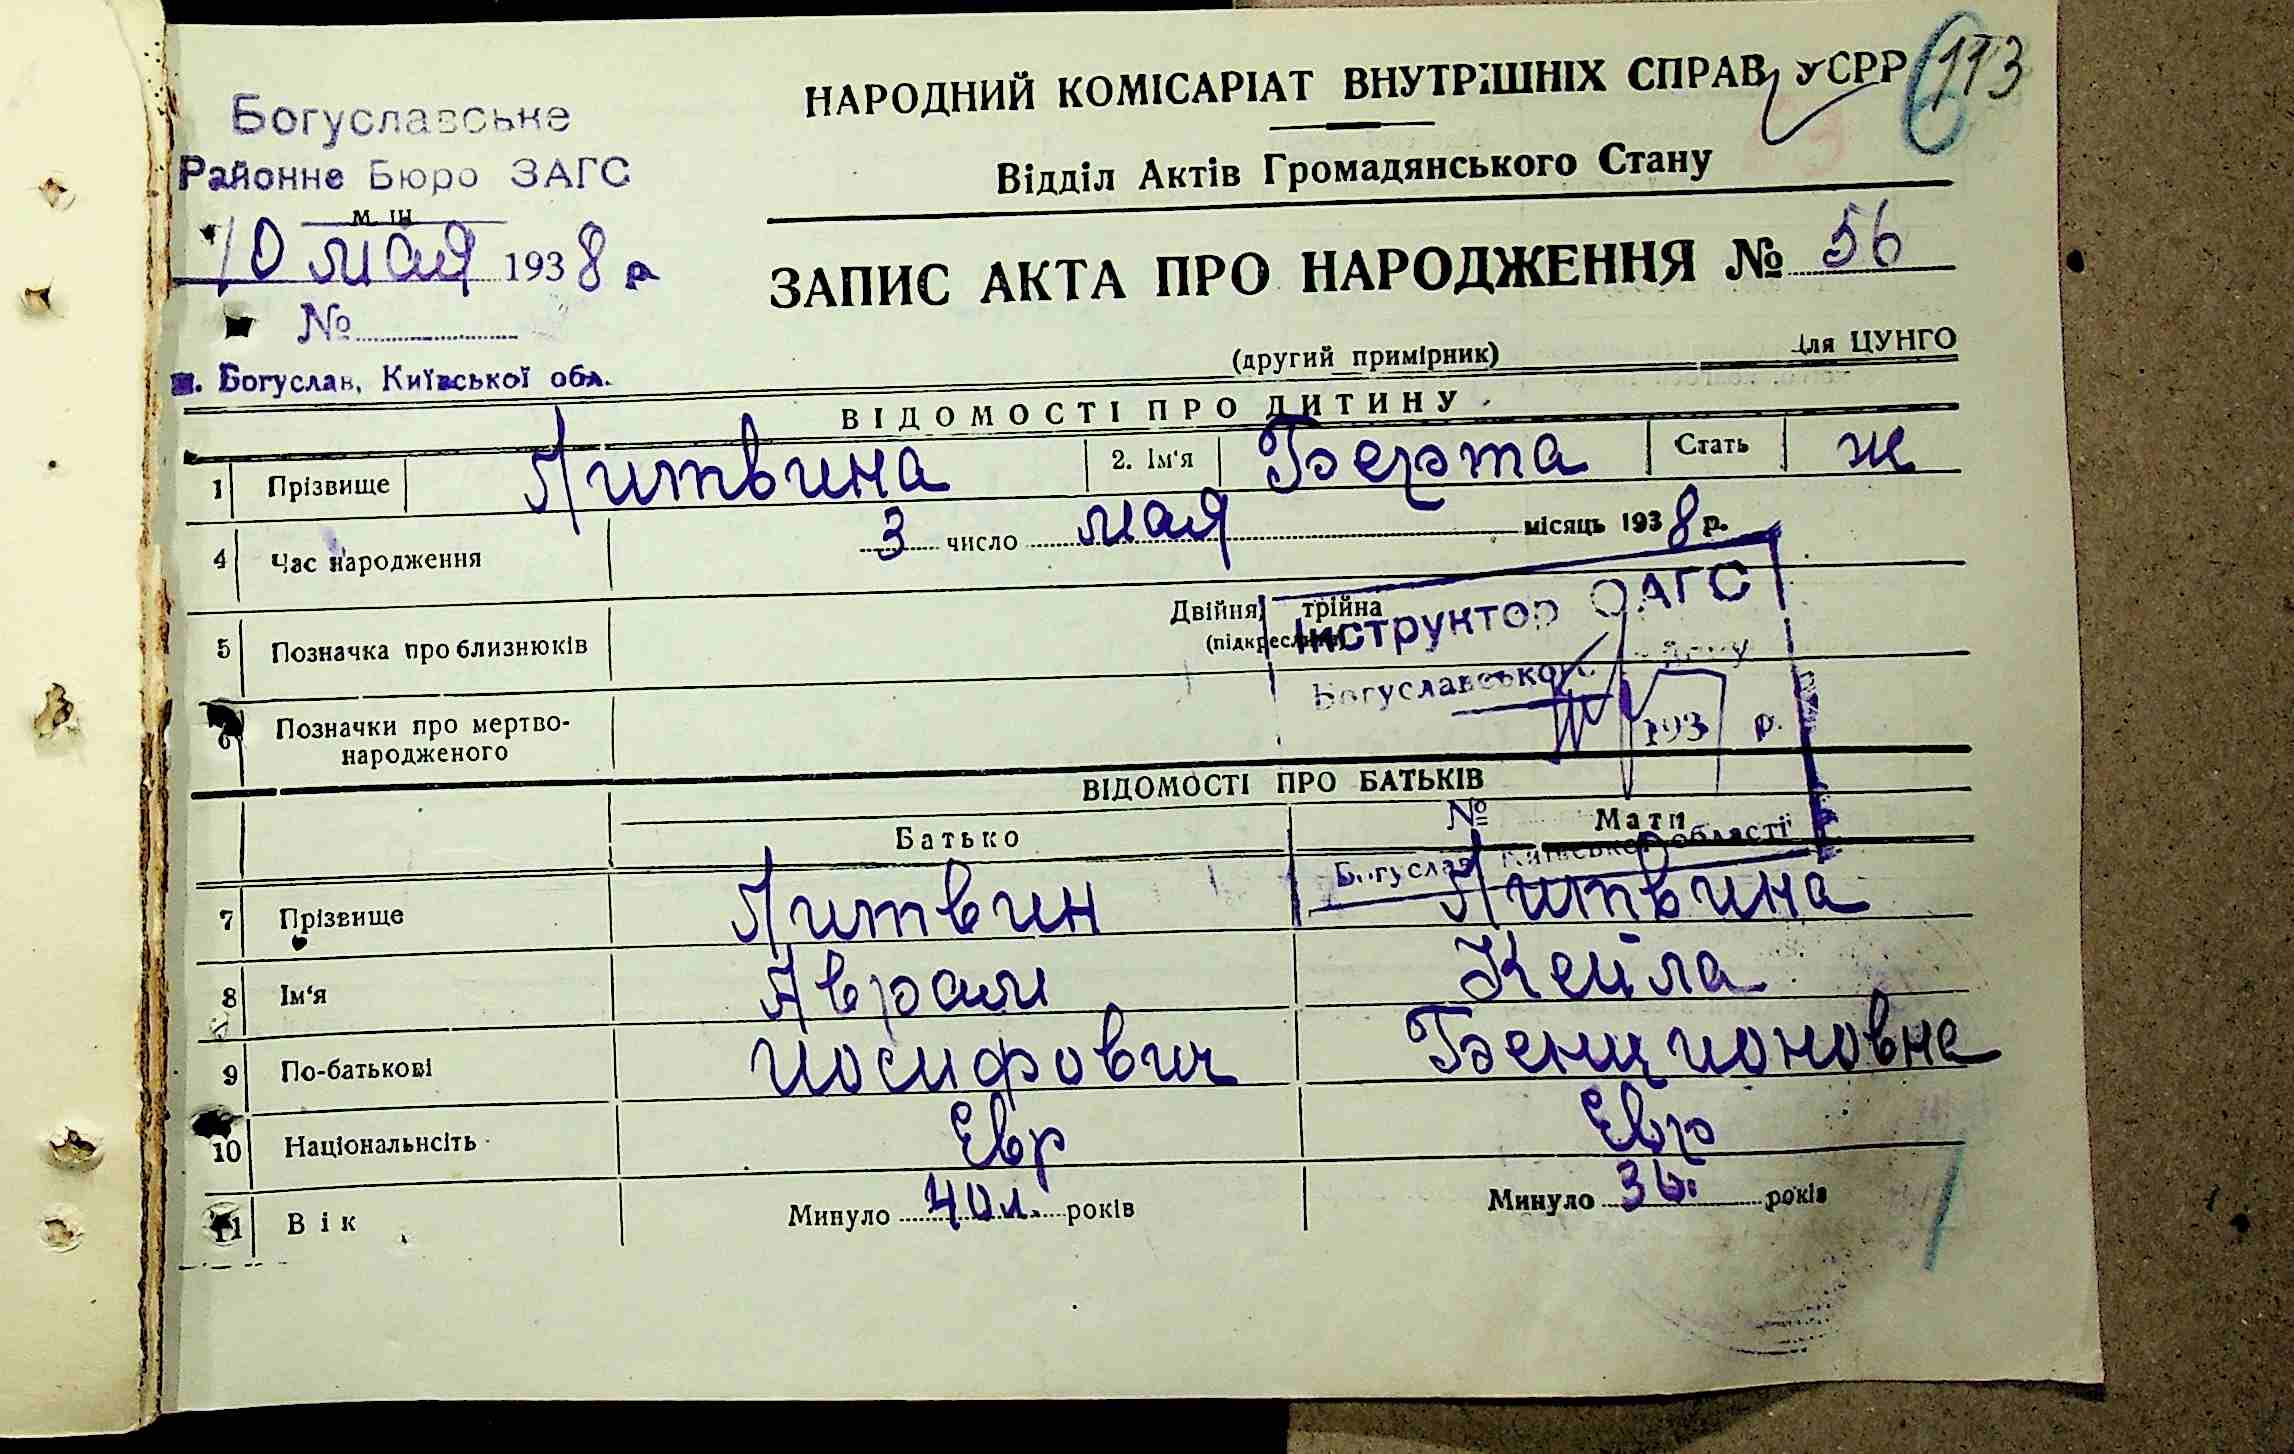 113
НАРОДНИЙ КОМІСАРІАТ ВНУТРІШНІХ СПРАВ УСРР
Відділ Актів Громадянського Стану
Богуславське
Районне Бюро ЗАГС
10 мая 1938 р
№
м. Богуслав, Київської обл.
ЗАПИС АКТА ПРО НАРОДЖЕННЯ № 56
(другий примірник) Для ЦУНГО
ВІДОМОСТІ ПРО ДИТИНУ
1 Прізвище Литвина 2. Ім'я Берта Стать ж
4 Час народження 3 число мая місяць 1938 р.
5 Позначка про близнюків Двійня, трійна
Інструктор ОАГС
Богуславського
193 р.
№
Богуслав Київської області
6 Позначки про мертво-
народженого
ВІДОМОСТІ ПРО БАТЬКІВ
Батько Мати
7 Прізвище Литвин Литвина
8 Ім'я Аврам Кейла
9 По-батькові иосифович Бенционовна
10 Національнсіть Евр Евр
11 Вік Минуло 40 л. років Минуло 36. років